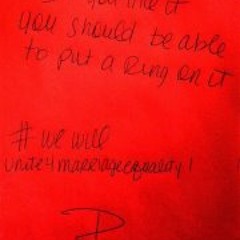 you like it
you should be able
to put a Ring on it
# we will
unite4marriageequality!